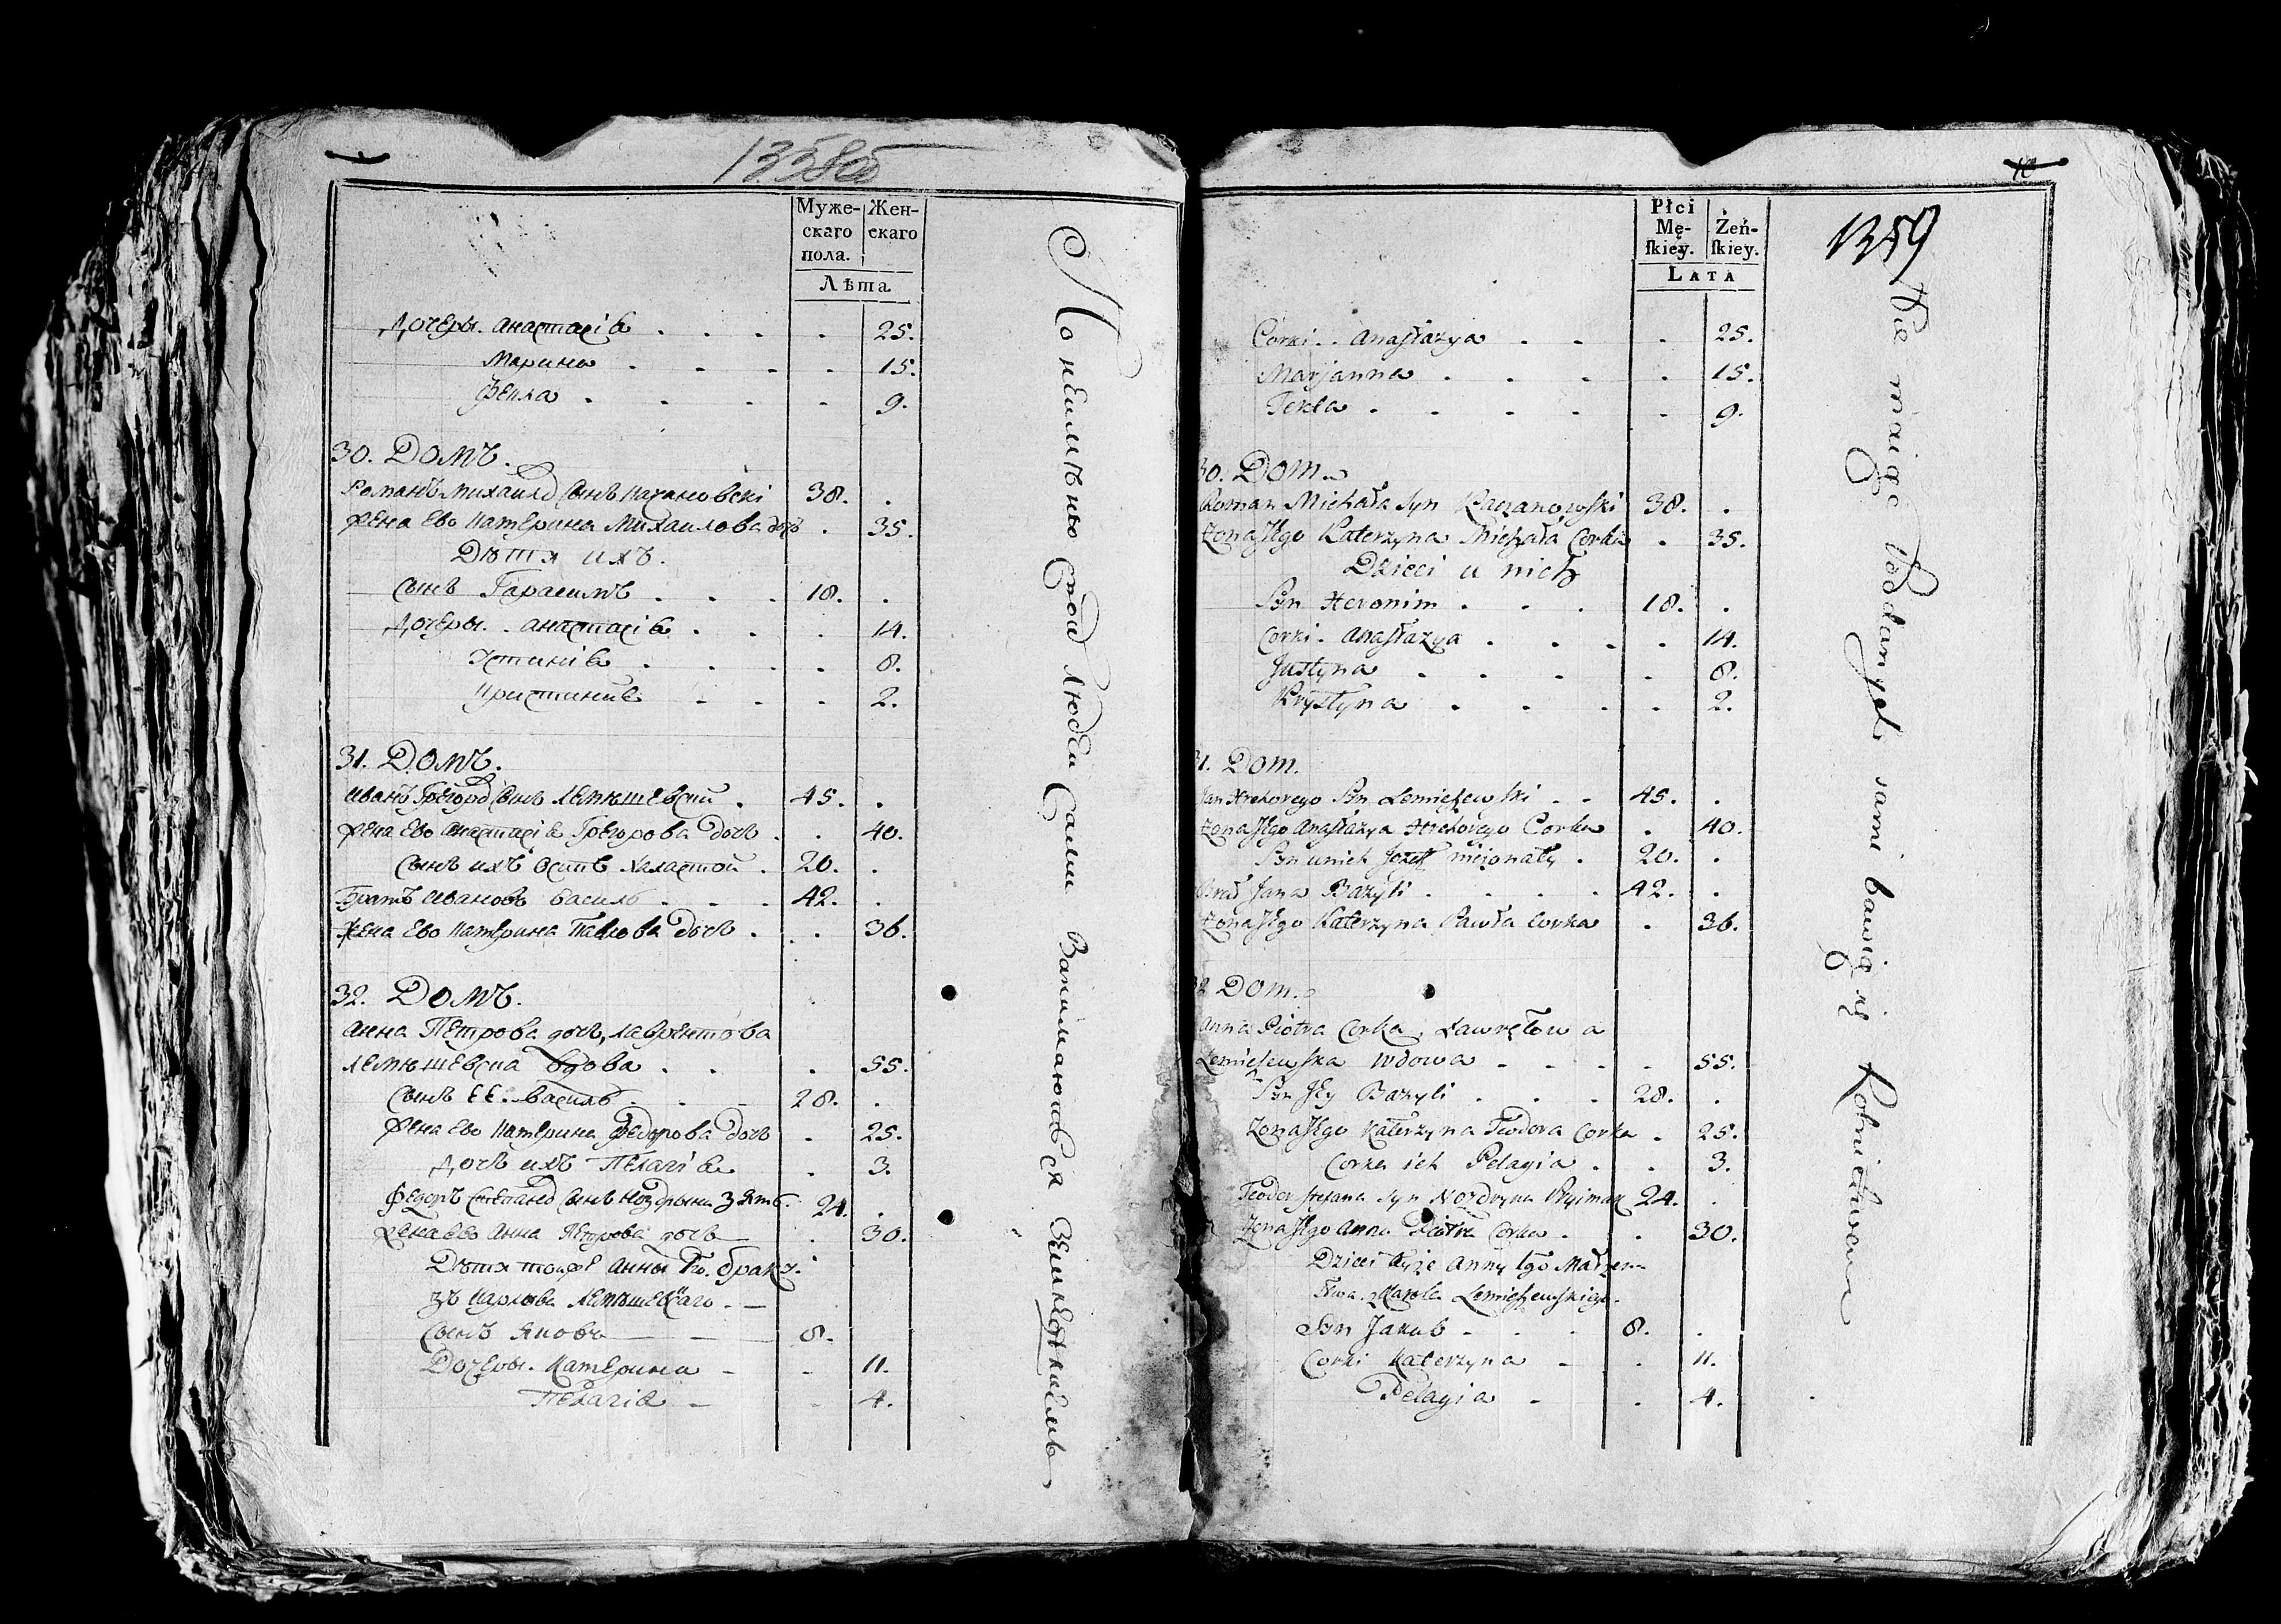 1358об
Муже-
скаго
пола.
Жен-
скаго
Лѣта
Дочеры. Анастасіѣ . . . . 25.
Марина . . . . 15.
Фекла . . . . 9.
30. Домъ.
Романъ Михайло Сынъ Качановскі 38. .
Жена Ево Катерина Михаилова дочь . 35.
Дѣтя ихъ.
Сынъ Гарасимъ . . . 18. .
Дочеры. . Анастасіѣ . . . 14.
Устиніѣ . . . . 8.
Кристиніѣ . . . 2.
31. Домъ.
Иванъ Грегоро Сынъ Лемѣшевскій . 45. .
Жена Ево Анастасіѣ Грегорова дочь . . 40.
Сынъ ихъ Осипъ Халастой . 20. .
Братъ Ивановъ Василь . . . 42. .
Жена Ево Катерина Павлова дочь . . 36.
32. Домъ.
Анна Петрова дочь, Лаврентова
Лемѣшевска вдова . . . 55.
Сынъ ЕЕ. Василь . . 28. .
Жена Ево Катерина Федорова дочь . 25.
Дочь ихъ Пелагіѣ . 3.
Федоръ Степано Сынъ Ноздрына Зять. 24. .
Жена Ево Анна Петрова дочь . 30.
Дѣтя тойже Анны Го. браку.
зъ Карлова Лемѣшевскаго. —
Сынъ Яковъ — — 8.
Дочеры. Катерина - - 11.
Пелагіѣ - - 4.
По неимѣнію стой людей Сами Занимаются Земледѣліемъ
10
1359
Płci
Mę-
ſkiey.
Żeń-
ſkiey.
LATA
Corki . . Anaſtazya . . . 25.
Marjanna . . . . 15.
Tekla . . . . . 9.
30. Dom.
Roman Michała Syn Kaczanowſki 38. .
Żona Jego Katerzyna Michała Corka . 35.
Dzieci u nich
Syn Heronim . . . 18. .
Corki. Anaſtazya . . . . 14.
Juſtyna . . . . . 8.
Kryſtyna . . . . . 2.
31. Dom.
Jan Hrehorego Syn Lemieſzewſki . . 45. .
Żona Jego Anaſtazya Hrehorego Corka . 40.
Syn u nich Jozef nieżonaty . 20. .
Brat Jana Bazyli . . . . 42. .
Żona Jego Katerzyna Pawła Corka . 36.
32 Dom.
Anna Piotra Corka, Lawrętowa
Lemieſzewſka Wdowa . . . . 55.
Syn Jey Bazyli . . . 28. .
Żona Jego Katerzyna Teodora Corka . 25.
Corka ich Pelagia . . 3.
Teodor Stefana Syn Nozdryna Pryimak 24. .
Żona Jego Anna Piotra Corka . . 30.
Dzieci tyże Anny 1go Małżeń-
ſtwa. z Karola Lemieſzewſkiego.
Syn Jakub . . . 8. .
Corki Katerzyna - . 11.
Pelagia - . 4.
Nie maiąc Poddanych sami bawią się Rolnictwem